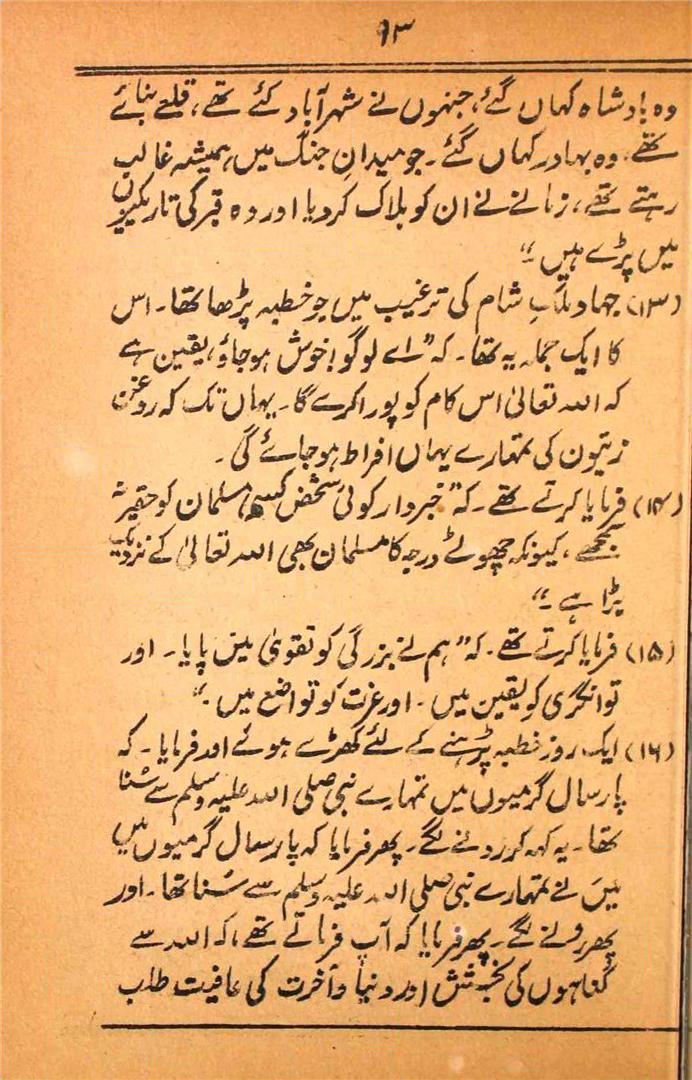 ۹۳
وہ بادشاہ کہاں گئے، جنہوں نے شہر آباد کئے تھے، قلعے بنائے
تھے، وہ بہادر کہاں گئے۔ جو میدانِ جنگ میں ہمیشہ غالب
رہتے تھے، زمانے نے ان کو ہلاک کر دیا اور وہ قبر کی تاریکیوں
میں پڑے ہیں ۔"
(۱۳) جہاد ملکِ شام کی ترغیب میں جو خطبہ پڑھا تھا۔ اس
کا ایک جملہ یہ تھا۔ کہ "اے لوگو! خوش ہو جاؤ، یقین ہے
کہ اللہ تعالیٰ اس کام کو پورا کرے گا۔ یہاں تک کہ روغن
زیتون کی تمہارے یہاں افراط ہو جائے گی۔
(۱۴) فرمایا کرتے تھے۔ کہ "خبردار کوئی شخص کسی مسلمان کو حقیر نہ
سمجھے، کیونکہ چھوٹے درجہ کا مسلمان بھی اللہ تعالیٰ کے نزدیک
بڑا ہے ۔"
(۱۵) فرمایا کرتے تھے۔ کہ "ہم نے بزرگی کو تقویٰ میں پایا۔ اور
توانگری کو یقین میں۔ اور عزت کو تواضع میں ۔"
(۱۶) ایک روز خطبہ پڑہنے کے لئے کھڑے ہوئے اور فرمایا۔ کہ
پارسال گرمیوں میں تمہارے نبی صلی اللہ علیہ وسلم سے سُنا
تھا۔ یہ کہہ کر رونے لگے۔ پھر فرمایا کہ پارسال گرمیوں میں
میں نے تمہارے نبی صلی اللہ علیہ وسلم سے سُنا تھا۔ اور
پھر رونے لگے۔ پھر فرمایا کہ آپ فرماتے تھے، کہ اللہ سے
گناہوں کی بخشش اور دنیا و آخرت کی عافیت طلب